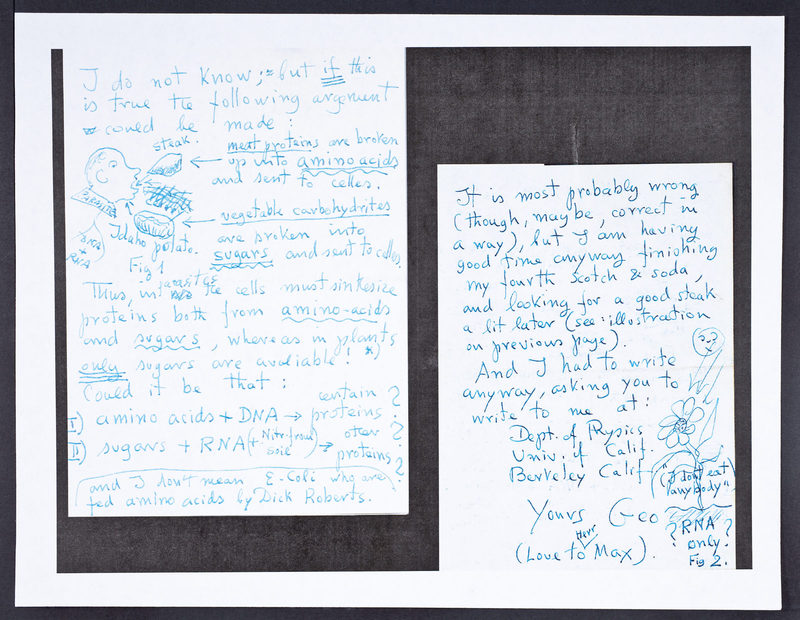 I do not know; but if this
is true the following argement
could be made:
steak.
meat proteins are broken
up into aminoacids
and sent to celles.
vegetable carbohydrites
are broken into
sugars and sent to celles.
Idaho potato.
DNA
+
RNA
Fig 1
Thus, in parasites the cells must sintesize
proteins both from amino-acids
and sugars, whereas in plants
only sugars are avaliable! *)
Could it be that:
I) amino acids + DNA → certain proteins?
II) sugars + RNA (+ Nitr. from soil) → other proteins?
and I don't mean E-Coli who are
fed amino acids by Dick Roberts.
It is most probably wrong
(though, maybe, correct in
a way), but I am having
good time anyway finishing
my fourth Scotch & soda,
and looking for a good steak
a lit later (see: illustration
on previous page).
And I had to write
anyway, asking you to
write to me at:
Dept. of Physics
Univ. of Calif.
Berkeley Calif
"I dont eat
anybody".
Yours Geo
(Love to Herr Max).
? RNA ?
only.
Fig 2.